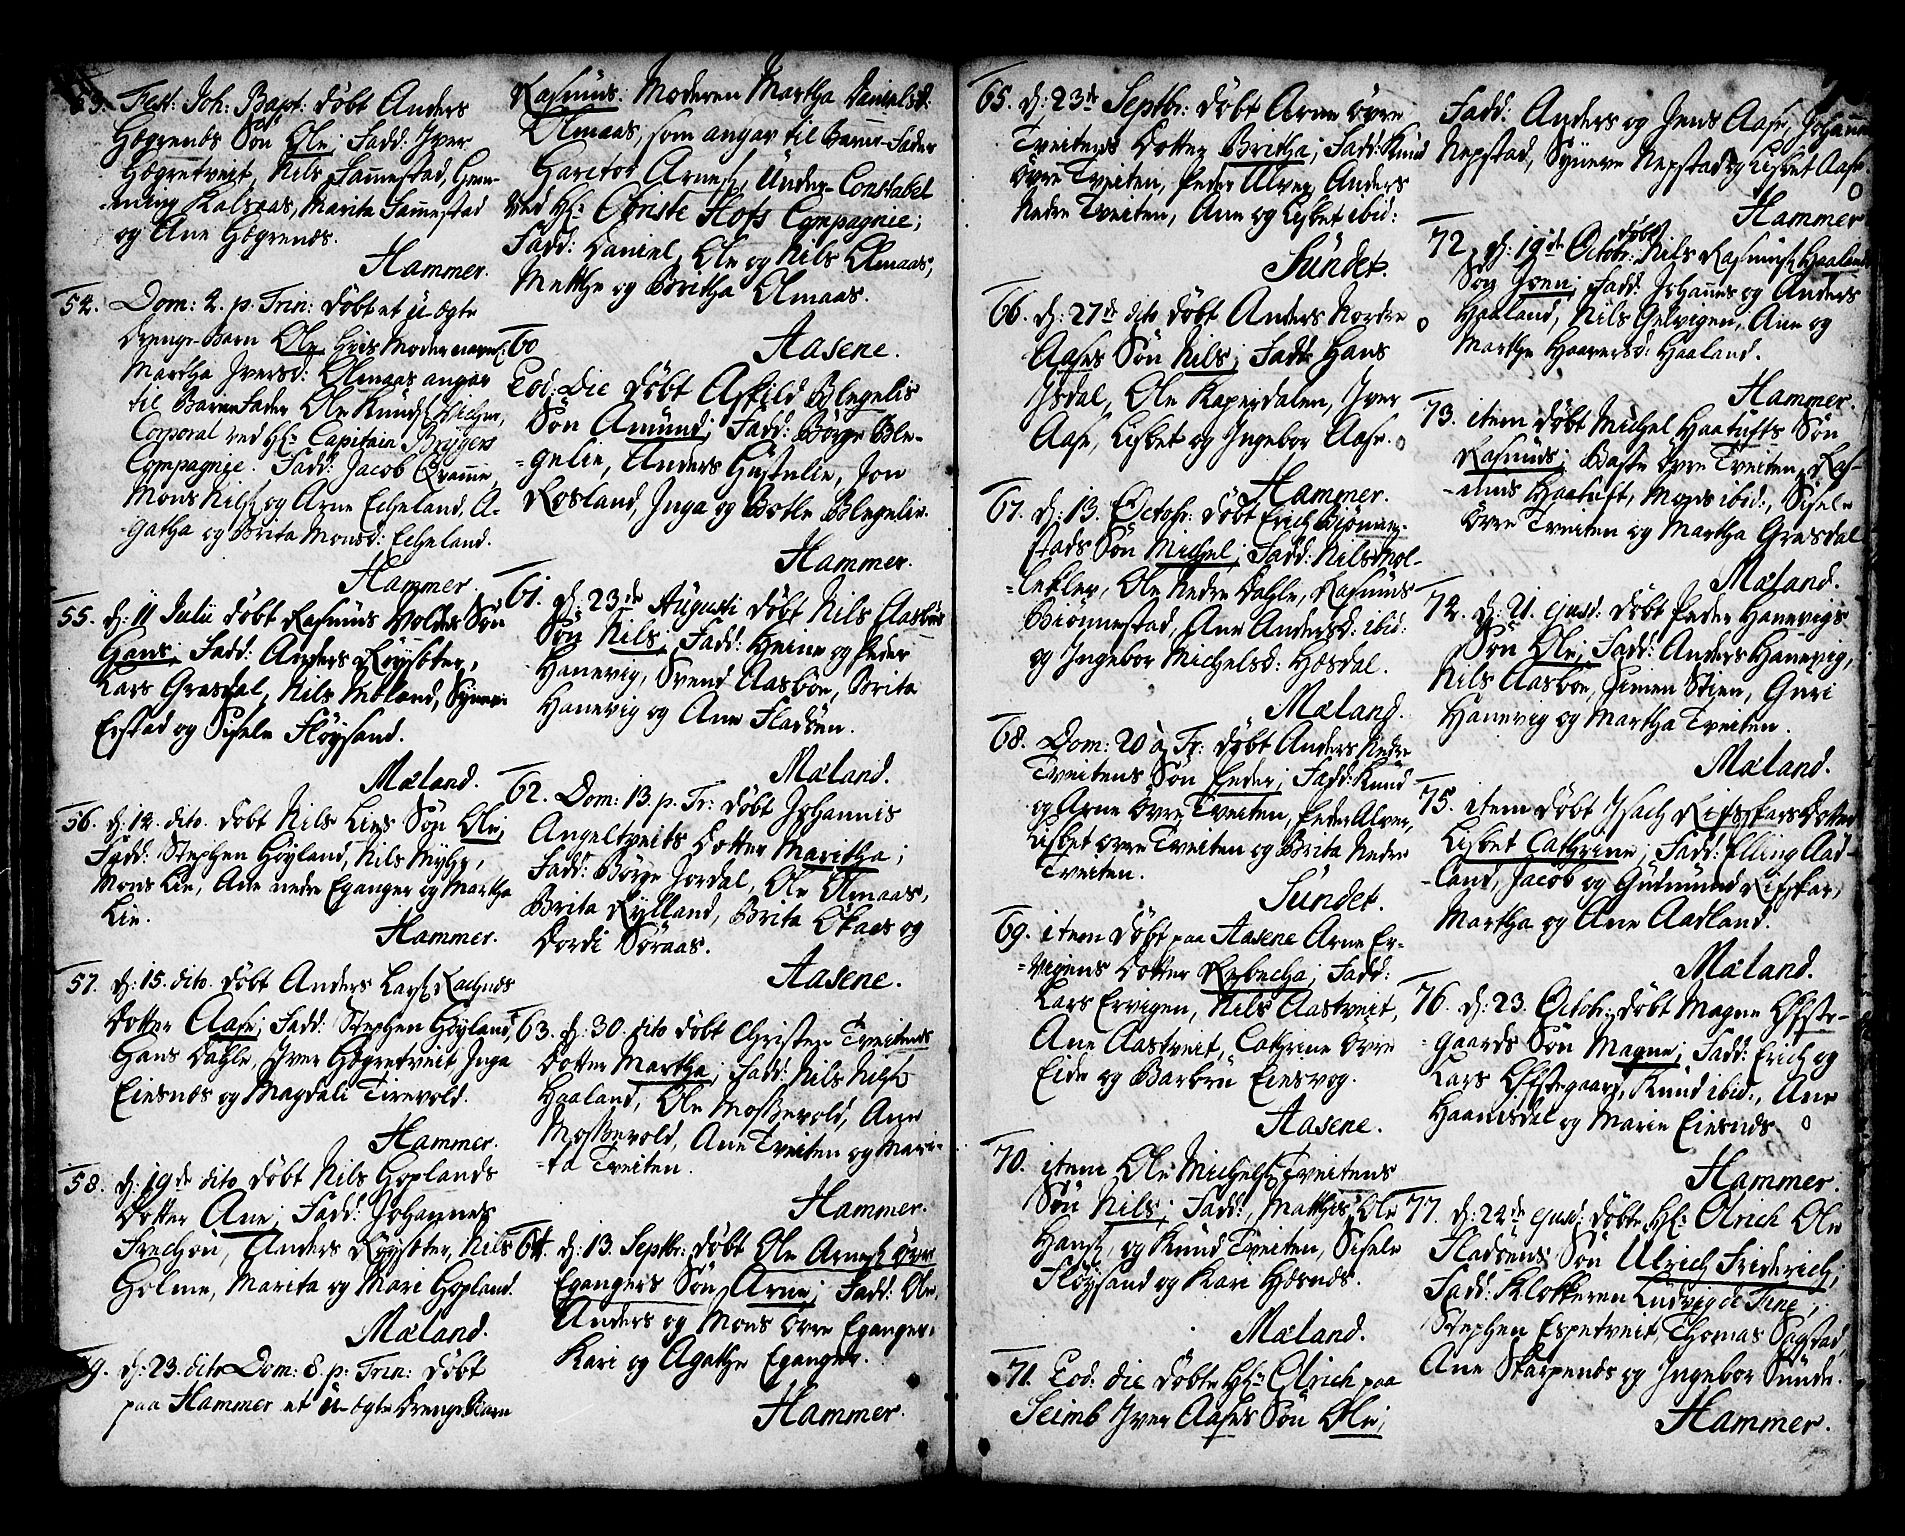 53. Fest: Joh: Bapt: døbt Anders
Høgrenæs Søn Ole; Fadd: Iver
Høgretveit, Nils Samestad, Hen-
-ning Kalsaas, Marita Samestad
og Ane Høgrenæs.
Hammer.
54. Dom: 2. p. Trin: døbt et u-egte
Drenge-Barn Ole hvis Moder navnl:
Martha Iversd: Olmaas angav
til Barne fader Ole Knuds:
Corporal ved Hr: Capitain Brygers
Compagnie. Fadd: Jacob Qvamme,
Mons Nils: og Arne Echeland, A-
-gatha og Brita Monsd: Echeland.
Hammer.
55. d: 11 Julii døbt Rasmus Molds Søn
Hans, Fadd: Anders Røysøter,
Lars Grasdal, Nils Mæland, Synnevi
Eistad og Sisele Fløysand.
Mæland.
56. d: 12. dito. døbt Nils Lies Søn Ole;
Fadd: Stephen Høyland, Nils Myhr,
Mons Lie, Ane nedre Eganger og Martha
Lie.
Hammer.
57. d: 15. dito. døbt Anders Lars: Rachnæs
Dotter Aase; Fadd: Stephen Høyland,
Hans Dahle, Iver Høgretveit Inga
Eiesnæs og Magdali Tirevold.
Hammer.
58. d: 19de dito døbt Nils Hoplands
Dotter Ane; Fadd: Johannes
Frechou, Anders Røysøter, Nils
Holme, Marita og Mari Hopland.
Mæland.
59. d: 23. dito Dom: 8. p: Trin: døbt
paa Hammer et u-egte Drenge Barn
Rasmus. Moderen Martha Danielsd:
Olmaas, som angav til Barne-Fader
Haritor Arnes: Under-Constabel
ved Hr: Obriste Hofs Compagnie;
Fadd: Daniel, Ole og Nils Olmaas,
Metthe og Britha Olmaas.
Aasene.
60
Eod: Die døbt Askild Blegelis
Søn Amund; Fadd: Børge Ble-
-gelie, Anders Hustulie, Jon
Rosland, Inga og Botle Blegelie.
Hammer.
61. d: 23de Augusti døbt Nils Aasbøes
Søn Nils; Fadd: Heine og Peder
Hanevig, Svend Aasbøe, Brita
Hanevig og Ane Fladøen.
Mæland.
62. Dom: 13. p. Tr: døbt Johannis
Angeltveits Dotter Maritha;
Fadd: Børge Jordal, Ole Olmaas,
Brita Rylland, Brita Okaes og
Dordi Søraas.
Aasene.
63. d: 30. dito døbt Christen Tveitens
Dotter Martha; Fadd: Nils Nils:
Haaland, Ole Mossevold, Ane
Mossevold, Ane Tveiten og Mari-
-ta Tveiten.
Hammer.
64. d: 13. Septbr: døbt Ole Arnes: Øvre
Egangers Søn Arne; Fadd: Ole,
Anders og Mons øvre Eganger.
Kari og Agathe Eganger.
Hammer.
65. d: 23de Septbr: døbt Arne øvre
Tveitens Dotter Britha; Fadd: Knud
Øvre Tveiten, Peder Alver, Anders
Nedre Tveiten, Ane og Lisbet ibid:
Sundet.
66. d: 27de dito døbt Anders Nordre
Aases Søn Nils; Fadd: Hans
Isdal, Ole Kaperdalen, Iver
Aase, Lisbet og Ingebor Aase.
Hammer.
67. d: 13. Octobr: døbt Erich Biønne-
-stads Søn Michel; Fadd: Nils Mol-
-lekler, Ole Nedre Dahle, Rasmus
Biønnestad, Ane Andersd: ibid:
og Ingebor Michelsd: Hosdal.
Mæland.
68. Dom: 20 a Tr: døbt Anders Nedre
Tveitens Søn Peder; Fadd: Knud
og Arne Øvre Tveiten, Peder Alver,
Lisbet øvre Tveiten og Brita Nedre
Tveiten.
Sundet.
69. item døbt paa Aasene Arne Er-
-vigens Dotter Rebecha; Fadd:
Lars Ervigen, Nils Aastveit,
Ane Aastveit, Cathrine øvre
Eide og Barbru Eiesvog.
Aasene.
70. item Ole Michels: Tveitens
Søn Nils; Fadd: Matthis, Ole
Hans: og Knud Tveiten, Sisele
Fløysand og Kari Hosnæs.
Mæland.
71. Eod. die døbte Hr: Olrich paa
Seimb Iver Aases Søn Ole;
Fadd: Anders og Jens Aase, Johannes
Nepstad, Synneve Nepstad og Lisbet Aase.
Hammer
72. d: 19de Octobr: døbt Nils Rasmus: Haalands
Søn Iven; Fadd: Johannes og Anders
Haaland, Nils Gelvigen, Ane og
Marthe Haaversd: Haaland.
Hammer.
73. item døbt Michel Haatufts Søn
Rasmus; Baste Øvre Tveiten, Ras-
-mus Haatuft, Mons ibid:, Sisele
Øvre Tveiten og Martha Grasdal
Mæland.
74. d: 21. ejusd: døbt Peder Hanevigs
Søn Ole; Fadd: Anders Hanevig,
Nils Aasbøe, Simen Stien, Guri
Hanevig og Martha Tveiten.
Mæland.
75. item døbt Isach Rifskars Dotter
Lisbet Cathrine; Fadd: Elling Aad-
-land, Jacob og Gudmund Rifskar,
Martha og Ane Aadland.
Mæland.
76. d: 23. Octobr: døbt Magne Ofste-
-gaards Søn Magne; Fadd: Erich og
Lars Ofstegaard, Knud ibid:, Ane
Haamisdal og Marie Eiesnæs.
Hammer.
77. d: 24de ejusd: døbte Hr: Olrich Ole
Fladøens Søn Ulrich Friderich;
Fadd: Klokkeren Ludvig de Fine,
Stephen Espetveit, Thomas Sagstad,
Ane Skarpenæs og Ingebor Sunde.
Hammer.